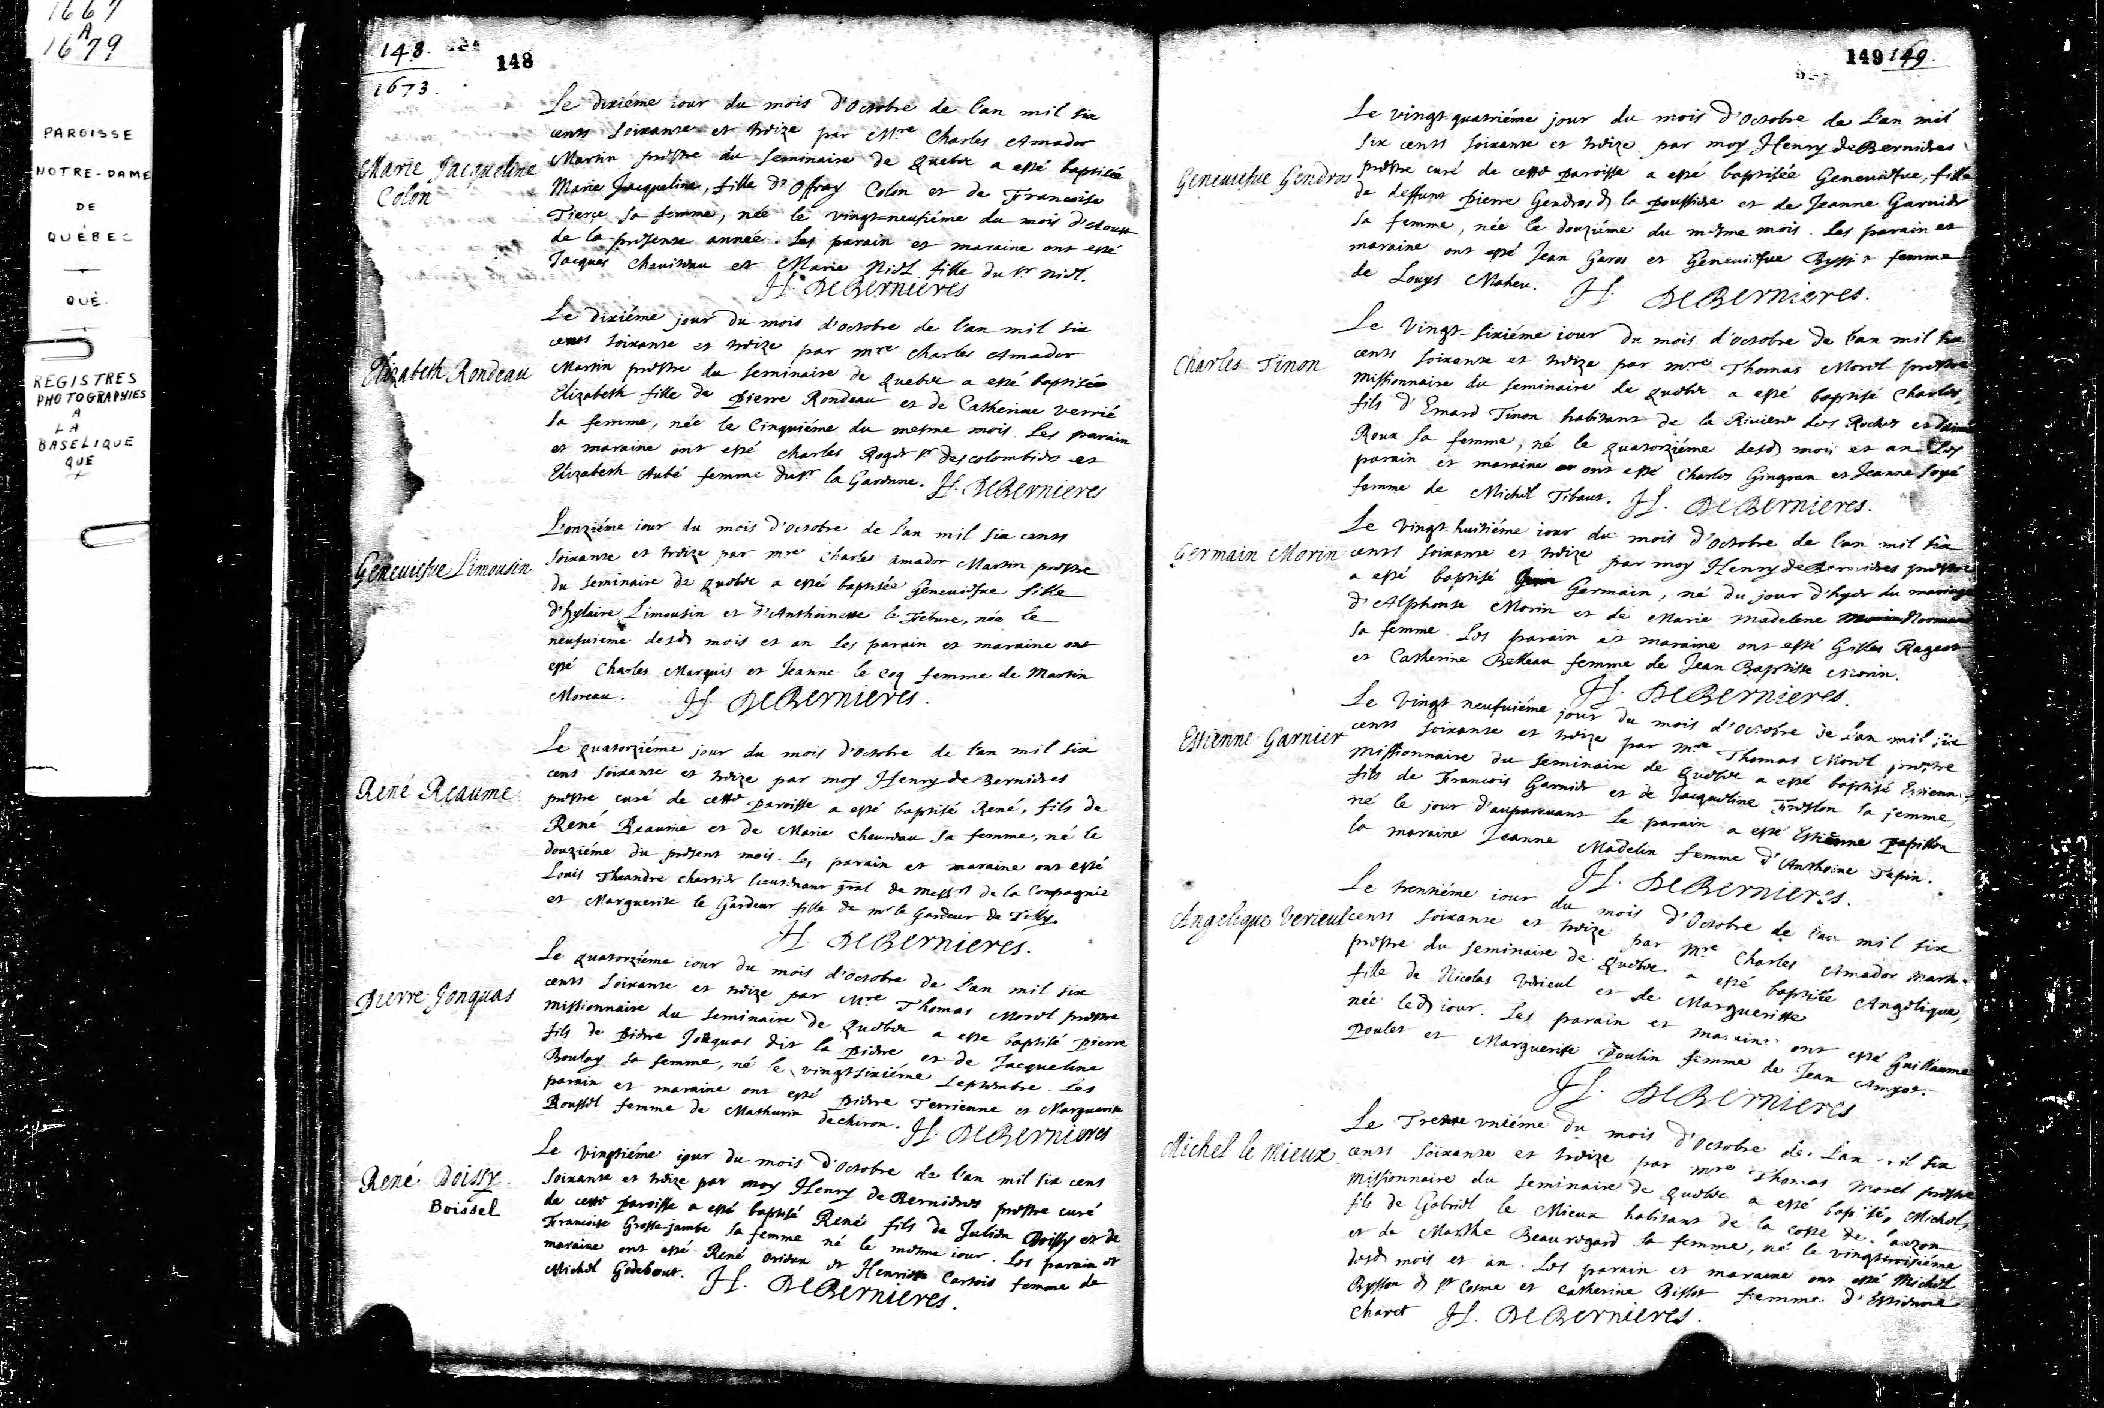 1667
A
1679
PAROISSE
NOTRE-DAME
DE
QUÉBEC
QUÉ.
REGISTRES
PHOTOGRAPHIES
A
LA
BASELIQUE
QUE
148.
148
1673.
Marie Jacqueline
Colon
Le dixiéme iour du mois d'Octobre de l'an mil six
cents soixante et treize par Mre Charles Amador
Martin prestre du seminaire de Quebec a esté baptisée
Marie Jacqueline, fille d'Offray Colon et de Francoise
Tierce sa femme, née le vingt-neufiéme du mois d'Aoust
de la presente année. Les parain et maraine ont esté
Jacques Cheuireau et Marie Niel fille du Sr Niel.
H. DeBernieres
Elizabeth Rondeau
Le dixiéme jour du mois d'octobre de l'an mil six
cents soixante et treize par mre Charles Amador
Martin prestre du seminaire de Quebec a esté baptisée
Elizabeth fille de Pierre Rondeau et de Catherine verrié
sa femme, née le Cinquiéme du mesme mois. Les parain
et maraine ont esté Charles Roger Sr descolombiers et
Elizabeth Aubé femme du Sr la Garenne. H. DeBernieres
Geneuiefue Limousin
L'onziéme iour du mois d'octobre de l'an mil six cents
soixante et treize par mre Charles Amador Martin prestre
du seminaire de Quebec a esté baptisée Geneuiefue fille
d'hylaire Limousin et d'Anthoinette le Febure, née le
neufuieme desd. mois et an Les parain et maraine ont
esté Charles Marquis et Jeanne le Coq femme de Martin
Moreau. H. DeBernieres.
René Reaume
Le quatorziéme jour du mois d'octobre de l'an mil six
cent soixante et treize par moy Henry de Bernieres
prestre curé de cette paroisse a esté baptisé René, fils de
René Reaume et de Marie Cheureau sa femme, né le
douziéme du present mois. Les parain et maraine ont esté
Louis Theandre Chartier lieutenant gnal de messrs de la Compagnie
et Marguerite le Gardeur fille de mr le Gardeur de Tilly.
H. DeBernieres.
Pierre Jonquas
Le quatorziéme iour du mois d'octobre de l'an mil six
cents soixante et treize par Mre Thomas Morel prestre
missionnaire du seminaire de Quebec a esté baptisé Pierre
fils de Pierre Jonquas dit la Pierre et de Jacqueline
Boulay sa femme, né le vingtsixiéme septembre. Les
parain et maraine ont esté Pierre Terrienne et Marguerite
Roussel femme de Mathurin dechiron. H. DeBernieres
René Boissy
Boissel
Le vingtiéme iour du mois d'Octobre de l'an mil six cent
soixante et treize par moy Henry de Bernieres prestre curé
de cette paroisse a esté baptisé René fils de Julien Boissy et de
Francoise Grosse-jambe sa femme né le mesme iour. Les parain et
maraine ont esté René et Henriette Cartois femme de
Michel Godebout. H. DeBernieres.
149
149.
Geneuiefue Gendros
Le vingt-quatriéme jour du mois d'Octobre de l'an mil
six cents soixante et treize par moy Henry de Bernieres
prestre curé de cette paroisse a esté baptisée Geneuiefue, fille
de deffunt Pierre Gendros d. la Poussiere et de Jeanne Garnier
sa femme, née le douziéme du mesme mois. Les parain et
maraine ont esté Jean Garos et Geneuiefue femme
de Louys Maheu. H. DeBernieres.
Charles Tinon
Le Vingt-sixiéme iour du mois d'octobre de l'an mil six
cents soixante et treize par mre Thomas Morel prestre
missionnaire du seminaire de Quebec a esté baptisé Charles,
fils d'Emard Tinon habitant de la Riviere des Roches et
Roux sa femme, né le quatorziéme desd. mois et an Les
parain et maraine ont esté Charles Gingran et Jeanne Soyé
femme de Michel Tibaut. H. DeBernieres.
Germain Morin
Le Vingt-huitiéme iour du mois d'Octobre de l'an mil six
cents soixante et treize par moy Henry de Bernieres prestre
a esté baptisé Germain, né du jour d'hyer du mariage
d'Alphonse Morin et de Marie madelene Normand
sa femme. Les parain et maraine ont esté Gilles Rageot
et Catherine Belleau femme de Jean Baptiste Morin.
H. DeBernieres.
Estienne Garnier
Le Vingt neufuiéme jour du mois d'octobre de l'an mil six
cents soixante et treize par mre Thomas Morel prestre
Missionnaire du Seminaire de Quebec a esté baptisé Estienne,
fils de Francois Garnier et de Jacqueline Freslon sa femme,
né le jour d'auparauant Le parain a esté Estienne papillon
la maraine Jeanne Madelin femme d'Anthoine Tapin.
H. DeBernieres.
Angelique Verieul
Le trentiéme iour du mois d'Octobre de l'an mil six
cents soixante et treize par Mre Charles Amador Martin
prestre du seminaire de Quebec. a esté baptisée Angelique,
fille de Nicolas Verieul et de Margueritte
née led. iour. Les parain et maraine ont esté Guillaume
Poulet et Marguerite Poulin femme de Jean Amyot.
H. DeBernieres
Michel le Mieux
Le Trente vniéme du mois d'Octobre de l'an mil six
cents soixante et treize par mre Thomas Morel prestre
Missionnaire du seminaire de Quebec a esté baptisé, Michel,
fils de Gabriel le Mieux habitant de la coste de Lauzon
et de Marthe Beauregard sa femme, né le vingttroisiéme
desd. mois et an. Les parain et maraine ont esté Michel
Bysson d. St Cosme et Catherine Bissot femme d'Estienne
Charet H. DeBernieres.